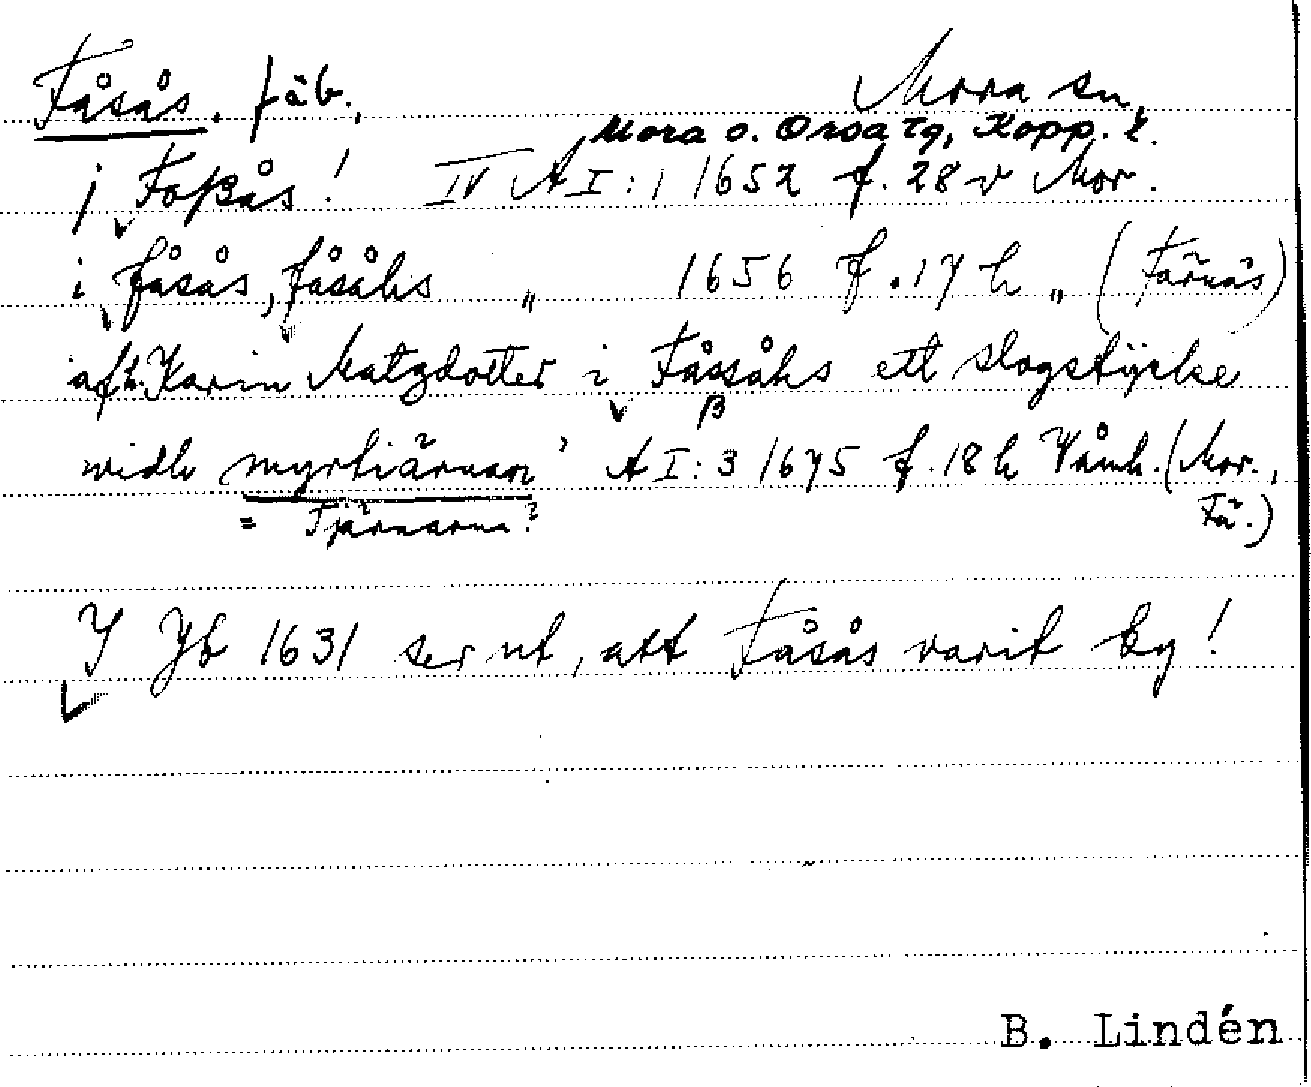 Fåsås. fäb. Mora sn,
Mora o. Orsa tg, Kopp. l.
j Foßås! IV A I: 1 1652 f. 28 v Mor.
i fåsås, fåsåhs " 1656 f. 17 h " (Färnäs)
afh. Karin Matzdotter i Fåssåhs ett slogstÿcke
ß
widh myrtiärnan' A I: 3 1675 f. 18 h Våmh. (Mor.,
= Tjärnarna? Fä.)
I Jb 1631 ser ut, att Fåsås varit by!
B. Lindén